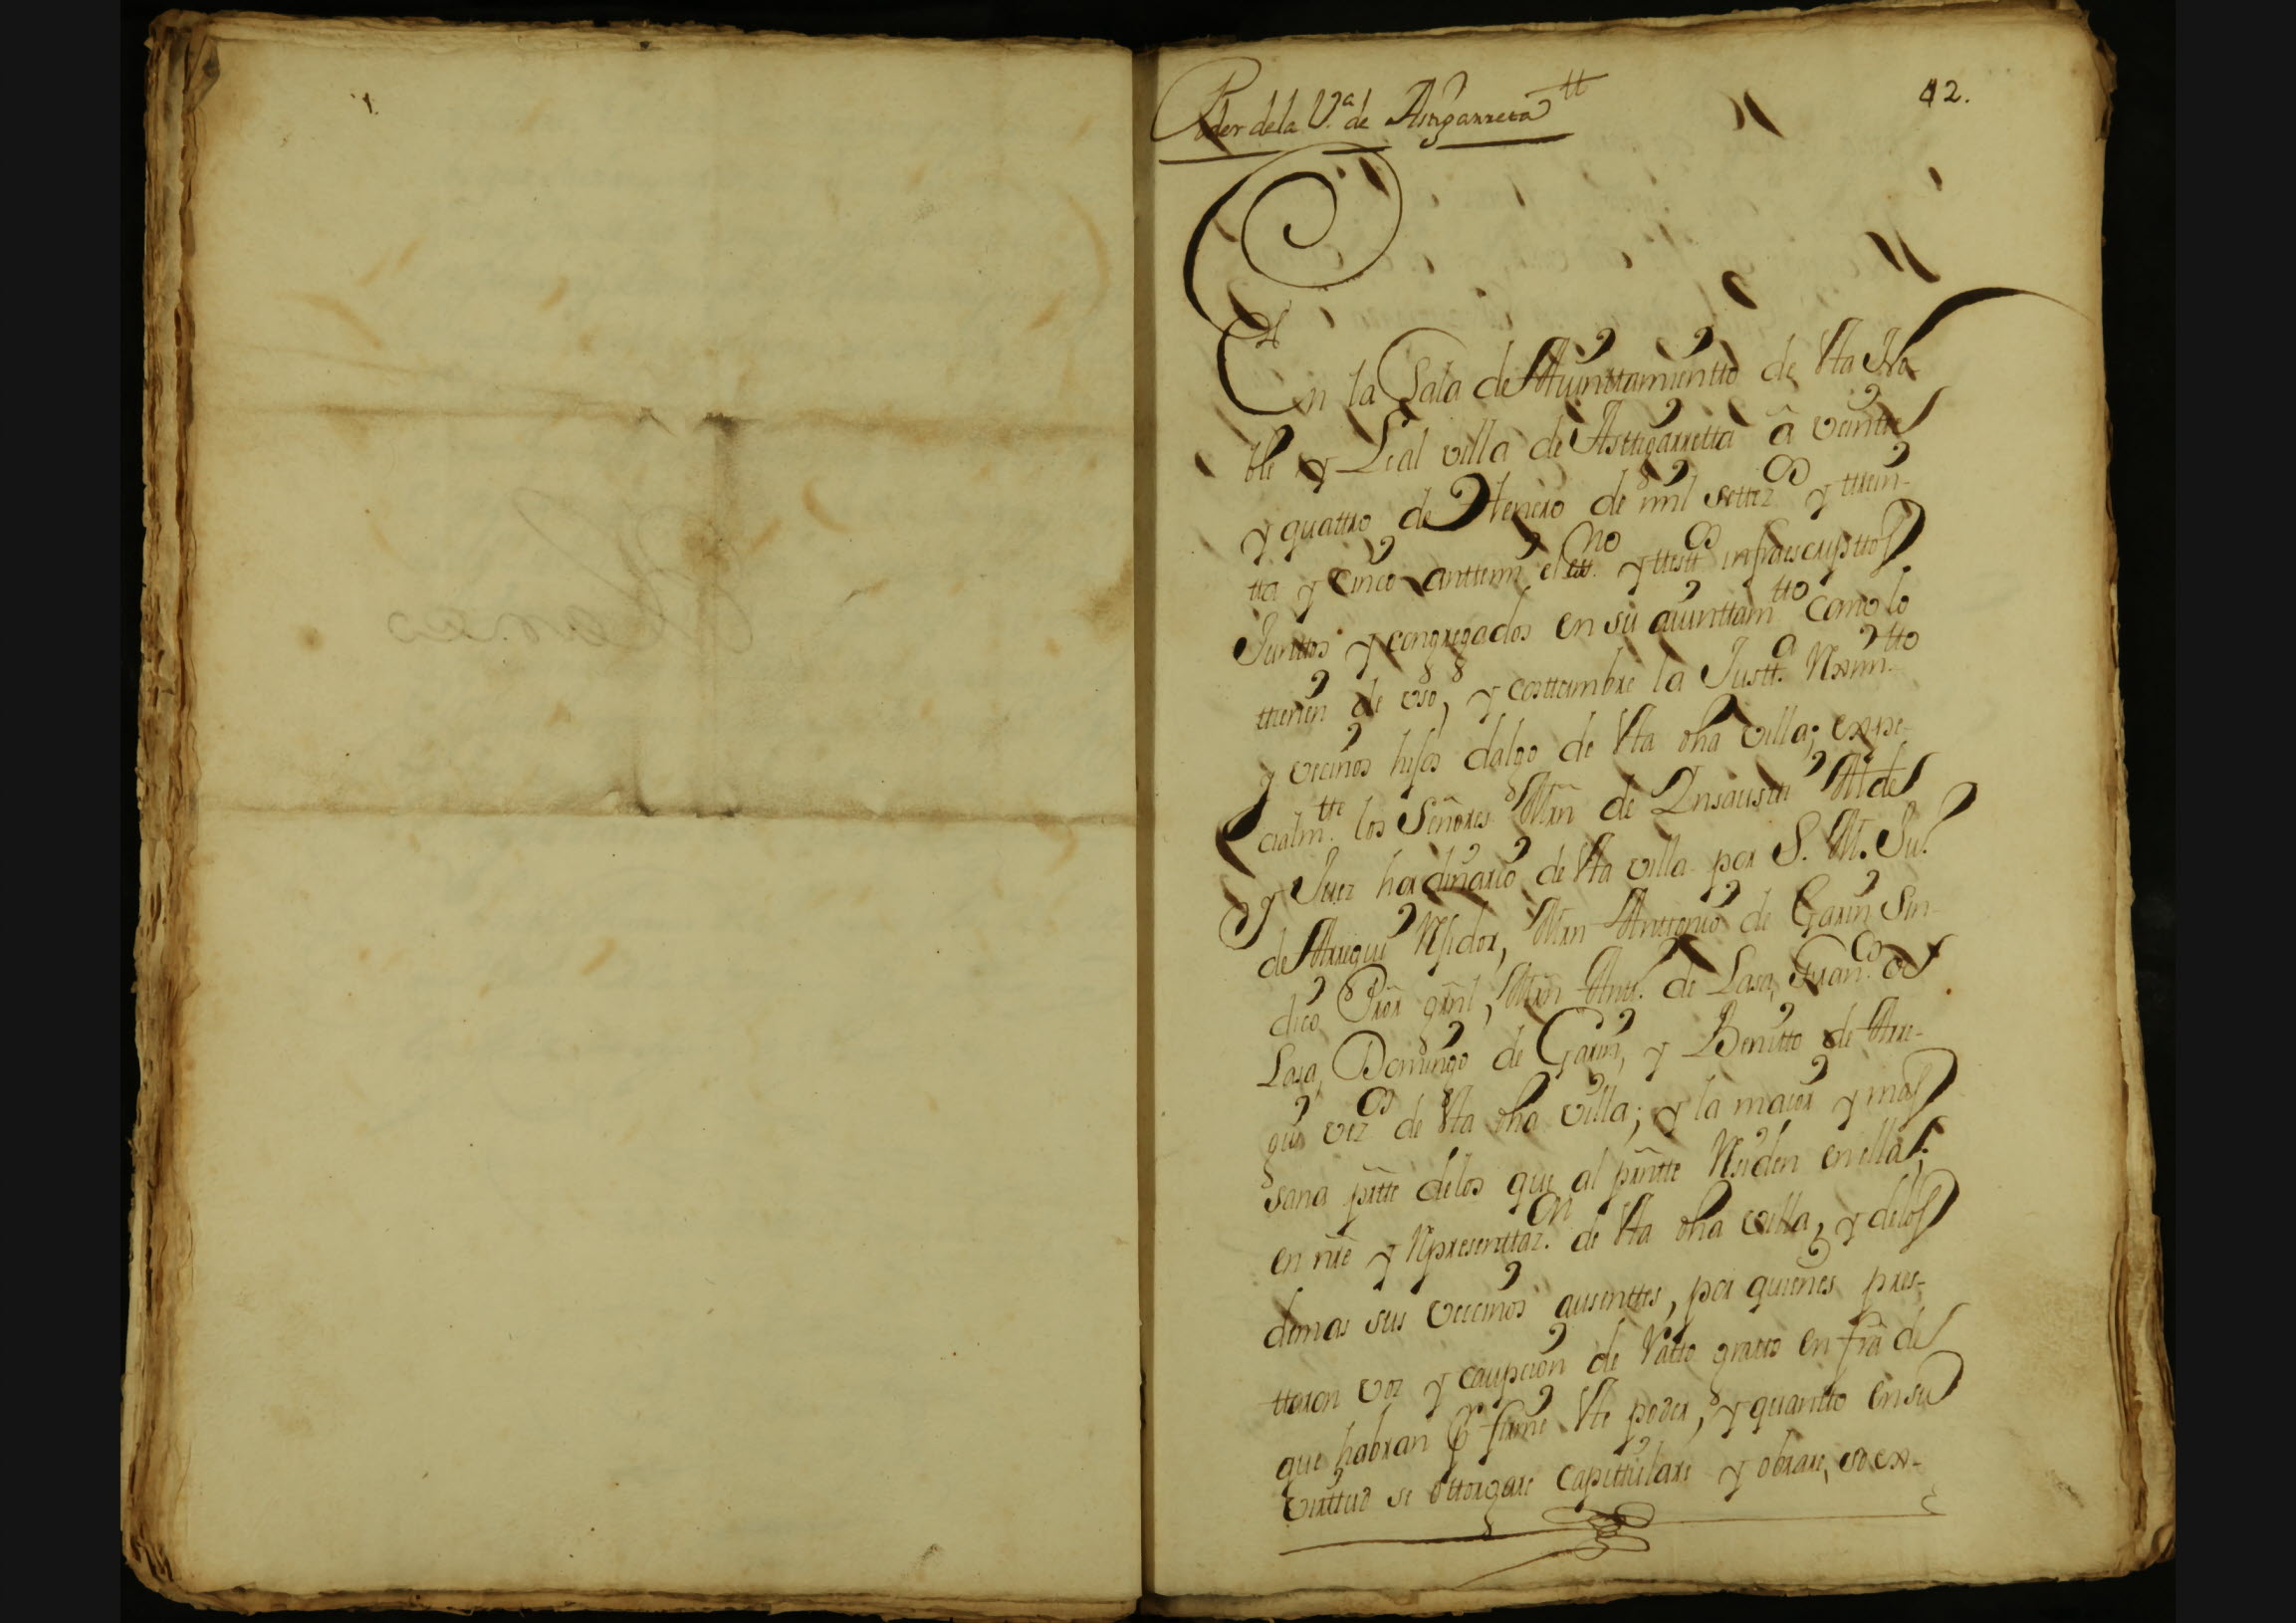 42.
Poder de la V.ª de Astigarreta
En la Sala de Aiunttamientto de Esta No-
ble y Leal villa de Asttigarretta â veintte
y quattro de Henero de mill settez.os y ttrein-
tta y cinco antte mi el ess.no y ttestt.os infraescripttos
Junttos y congregados en su aiunttam.tto como lo
ttienen de vso, y costtumbre la Justt.a Rexim.tto
y vecinos hijos dalgo de Esta dha villa; expe-
cialm.tte los Señores Mrn de Insausti Alde
y Juez hordinario de Esta villa por S. M. Ju.
de Arregui Rejidor, Mrn Anttonio de Garin Sin-
dico Pror grnl, Mrn Antt. de Lasa, Fran.co de
Lasa, Domingo de Garin, y Benitto de Arre-
gui vez.os de Esta dha villa; y la maior y mas
sana partte delos que al pressntte Residen en ella;
en nre y Representtaz.on de Esta dha villa, y delos
demas sus vecinos ausenttes, por quienes pres-
ttaron voz y caupcion de Ratto gratto en fra de
que habran p.r firme Este poder, y quantto en su
virttud se ottorgare capittulare y obrare, so ex-